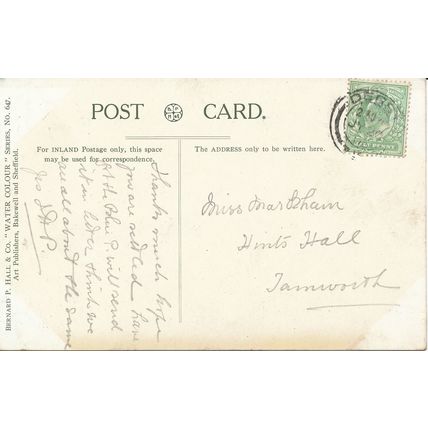 POST CARD.
For INLAND Postage only, this space
may be used for correspondence.
The ADDRESS only to be written here.
BERNARD P. HALL & CO. "WATER COLOUR" SERIES, No. 647.
Art Publishers, Bakewell and Sheffield.
Thanks much hope
you are settled have
got the Blue P. will send
it on rather think we
are all about the same
HALFPENNY
Miss Markham
Hints Hall
Tamworth